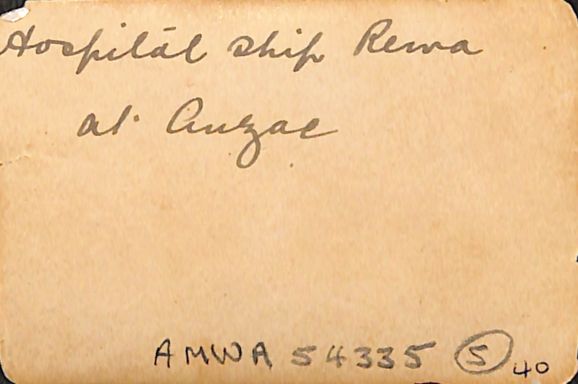 Hospital ship Rewa
at Anzac
AMWA 54335 5 40